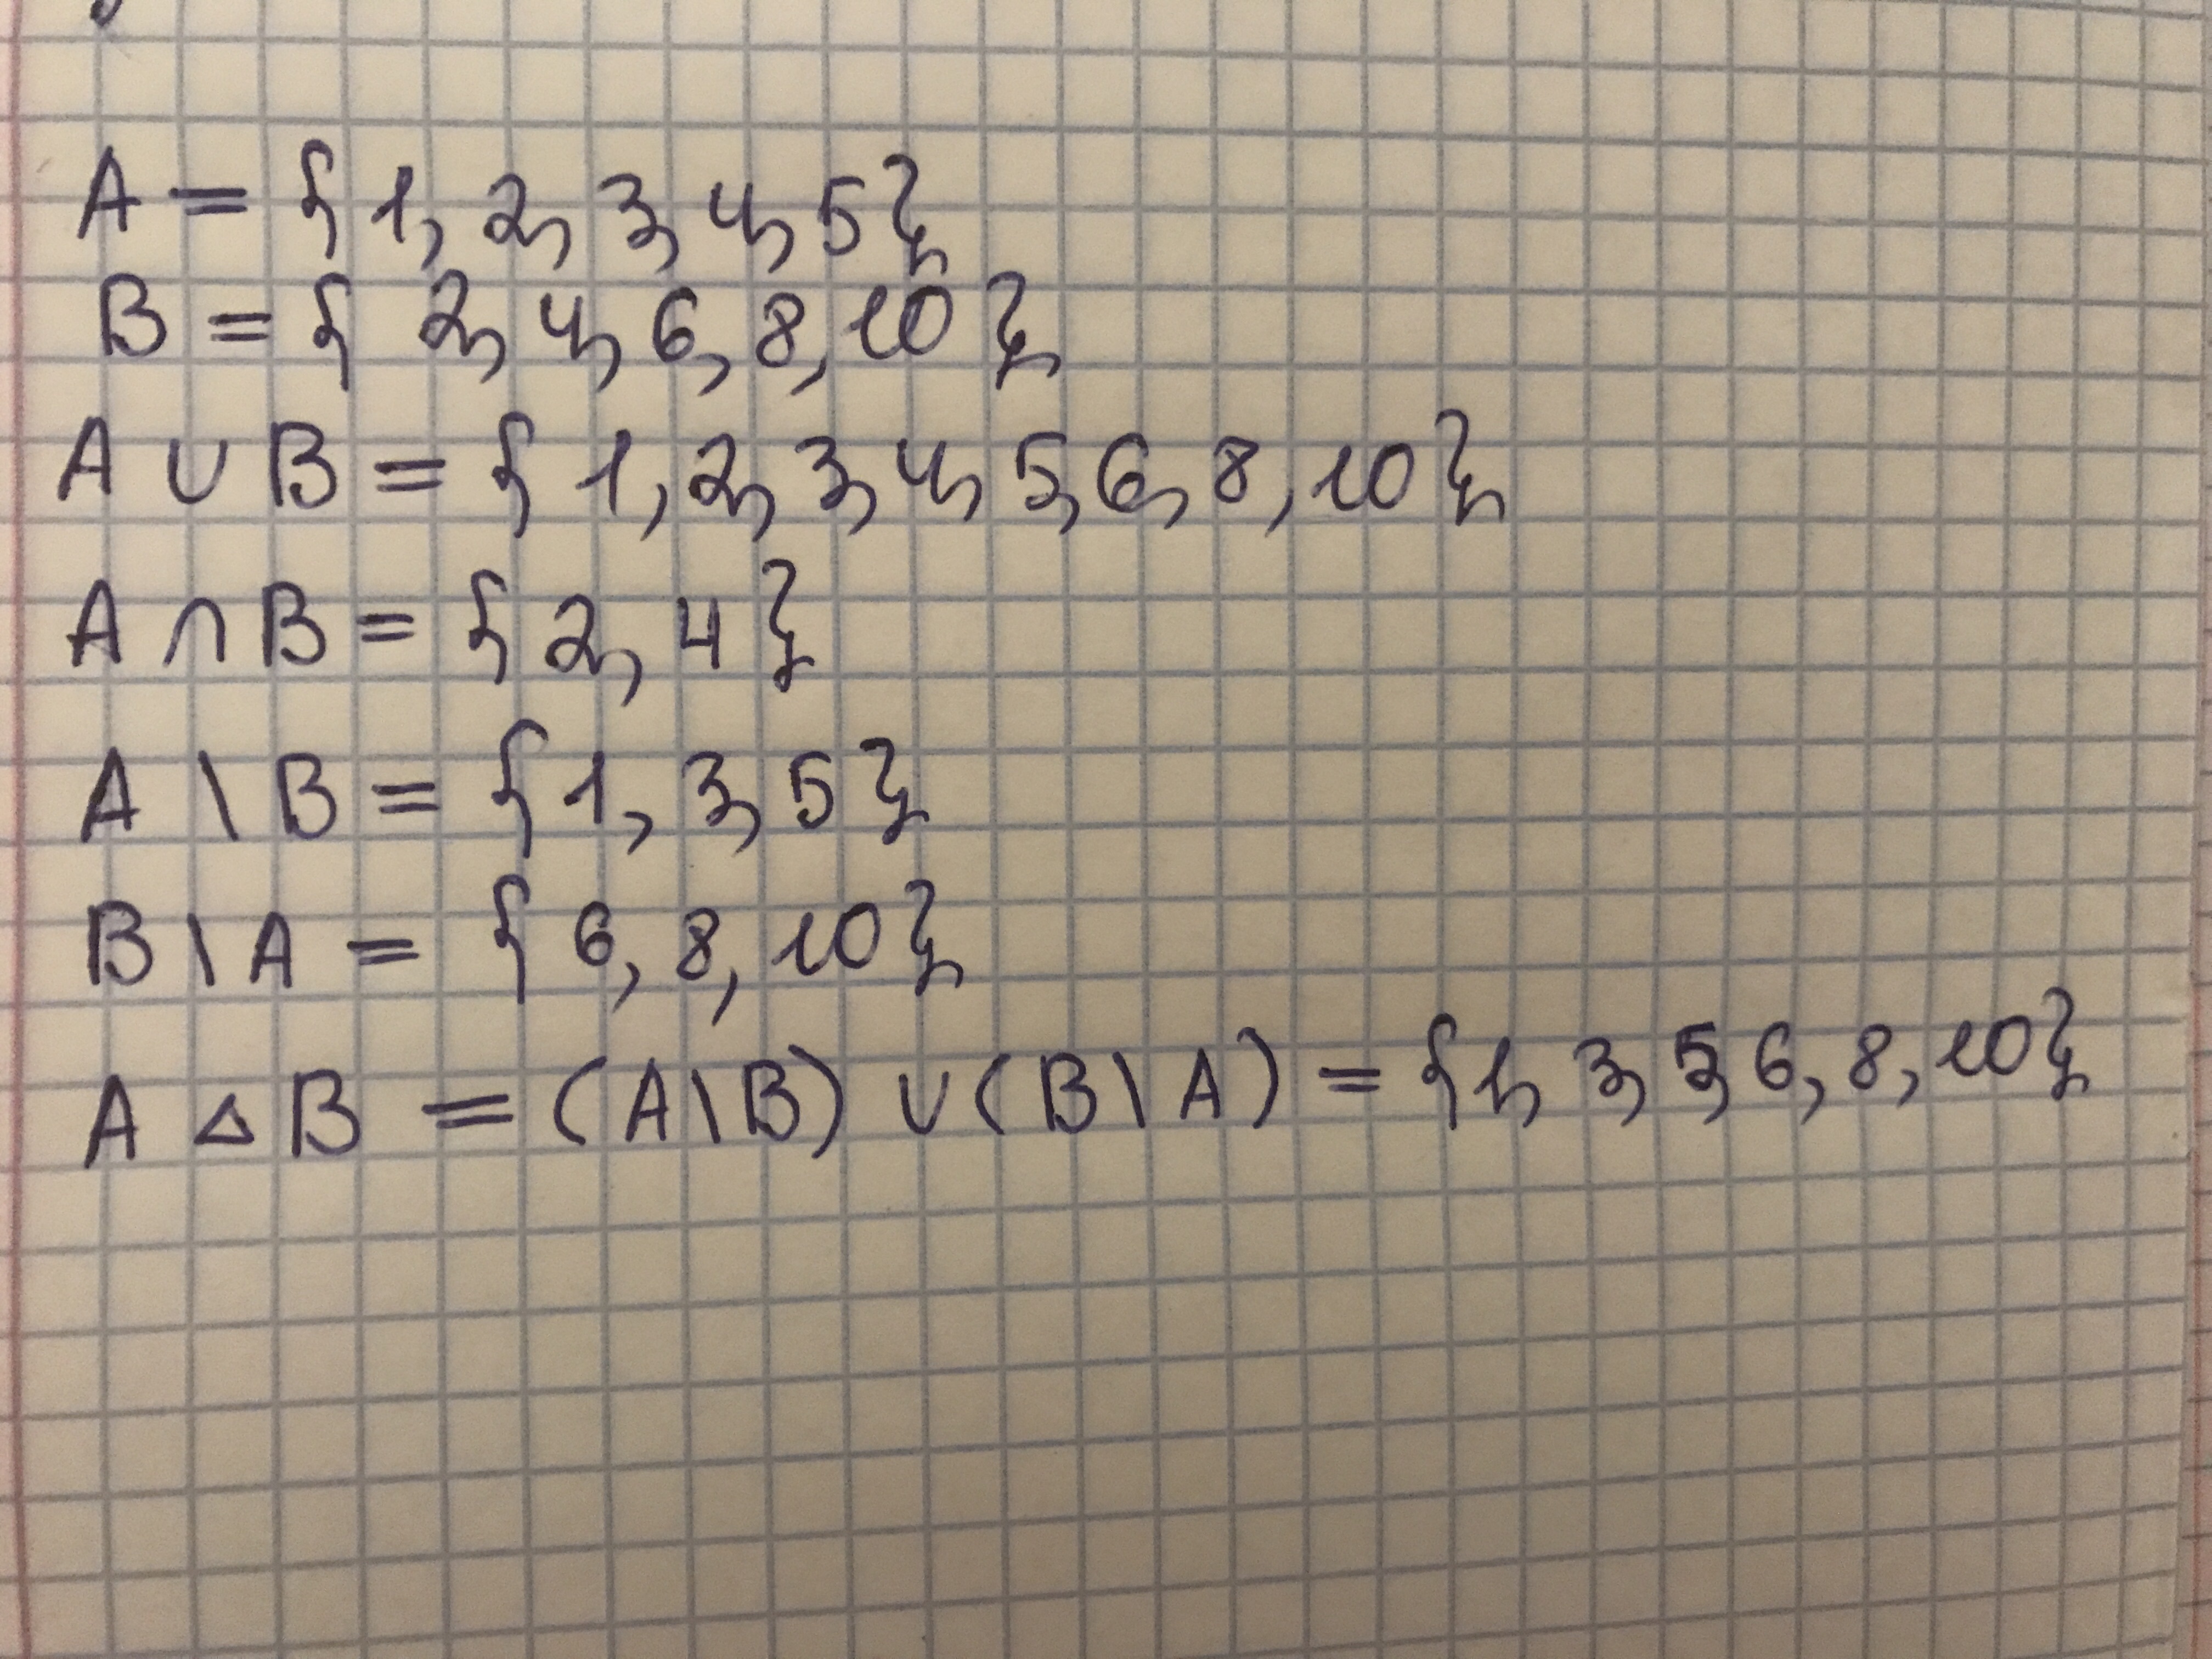 A = { 1, 2, 3, 4, 5 }
B = { 2, 4, 6, 8, 10 }
A ∪ B = { 1, 2, 3, 4, 5, 6, 8, 10 }
A ∩ B = { 2, 4 }
A \ B = { 1, 3, 5 }
B \ A = { 6, 8, 10 }
A △ B = (A \ B) ∪ (B \ A) = { 1, 3, 5, 6, 8, 10 }